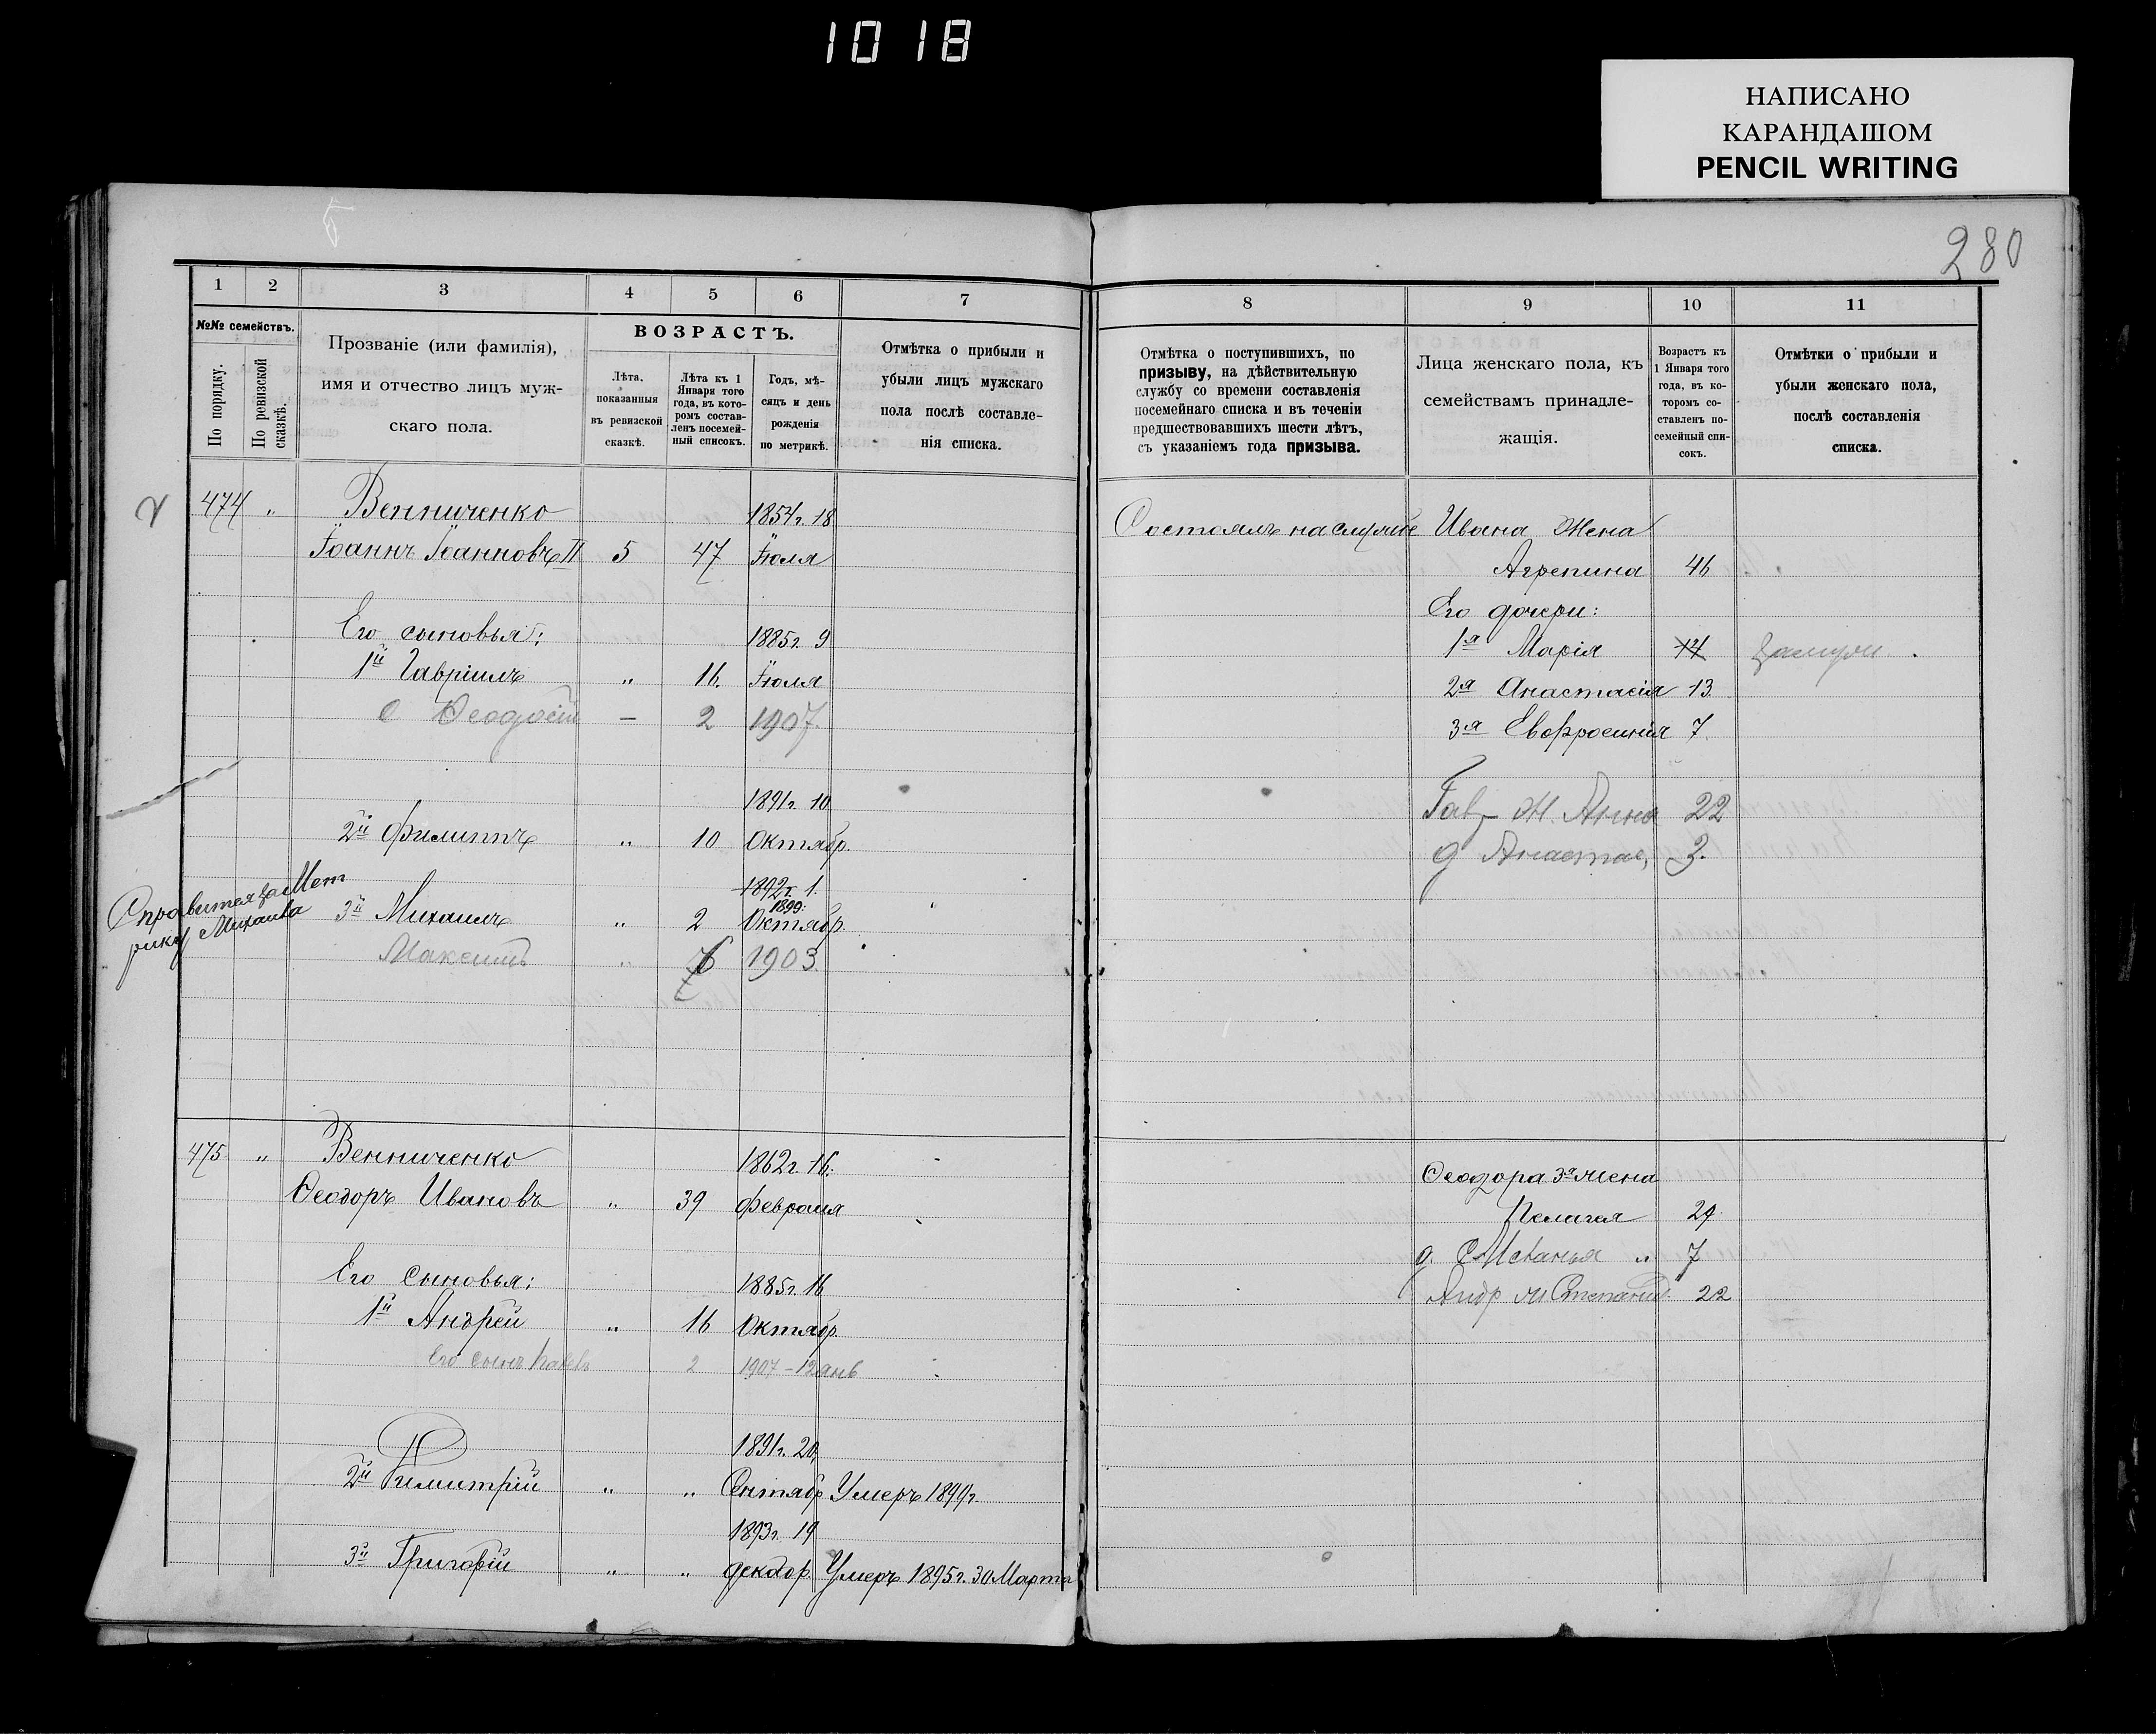 1018
НАПИСАНО
КАРАНДАШОМ
PENCIL WRITING
280
1 2 3 4 5 6 7
№№ семействъ.
По порядку.
По ревизской сказкѣ.
Прозваніе (или фамилія),
имя и отчество лицъ муж-
скаго пола.
ВОЗРАСТЪ.
Лѣта,
показанныя
въ ревизской
сказкѣ.
Лѣта къ 1
Января того
года, въ кото-
ромъ состав-
ленъ посемей-
ный списокъ.
Годъ, мѣ-
сяцъ и день
рожденія
по метрикѣ.
Отмѣтка о прибыли и
убыли лицъ мужскаго
пола послѣ составле-
нія списка.
474 " Венниченко 1854г. 18
Іоаннъ Іоанновъ II 5 47 Іюля
Его сыновья: 1885г. 9
1й Гавріилъ " 16. Іюля
с Ѳеодосій — 2 1907.
1891г. 10
2й Филиппъ " 10 Октябр.
Справится за Мет
рику Михаила
1892г. 1.
1899:
3й Михаилъ " 2 Октябр.
Максимъ " 6 1903.
475 " Венниченко 1862г. 16.
Ѳеодоръ Ивановъ " 39 Февраля
Его Сыновья: 1885г. 16
1й Андрей " 16 Октябр.
Его сынъ 2 1907-12 янв
1891г. 20
2й Димитрій " " Сентябр Умеръ 1899г.
1893г. 19
3й Григорій " " декабр. Умеръ 1895г. 30 Марта
8 9 10 11
Отмѣтка о поступившихъ, по
призыву, на дѣйствительную
службу со времени составленія
посемейнаго списка и въ теченіи
предшествовавшихъ шести лѣтъ,
съ указаніемъ года призыва.
Лица женскаго пола, къ
семействамъ принадле-
жащія.
Возрастъ къ
1 Января того
года, въ ко-
торомъ со-
ставленъ по-
семейный спи-
сокъ.
Отмѣтки о прибыли и
убыли женскаго пола,
послѣ составленія
списка.
Состоялъ на службе Ивана Жена
Агрепина 46
Его дочери:
1я Марія 17 Замуж.
2я Анастасія 13
3я Евфросинія 7
Гавр Ж. Анна 22
д Анастас, 3.
Ѳеодора 3я жена
Пелагея 29
д. Меланья " 7
Андр ж Степанид. 22